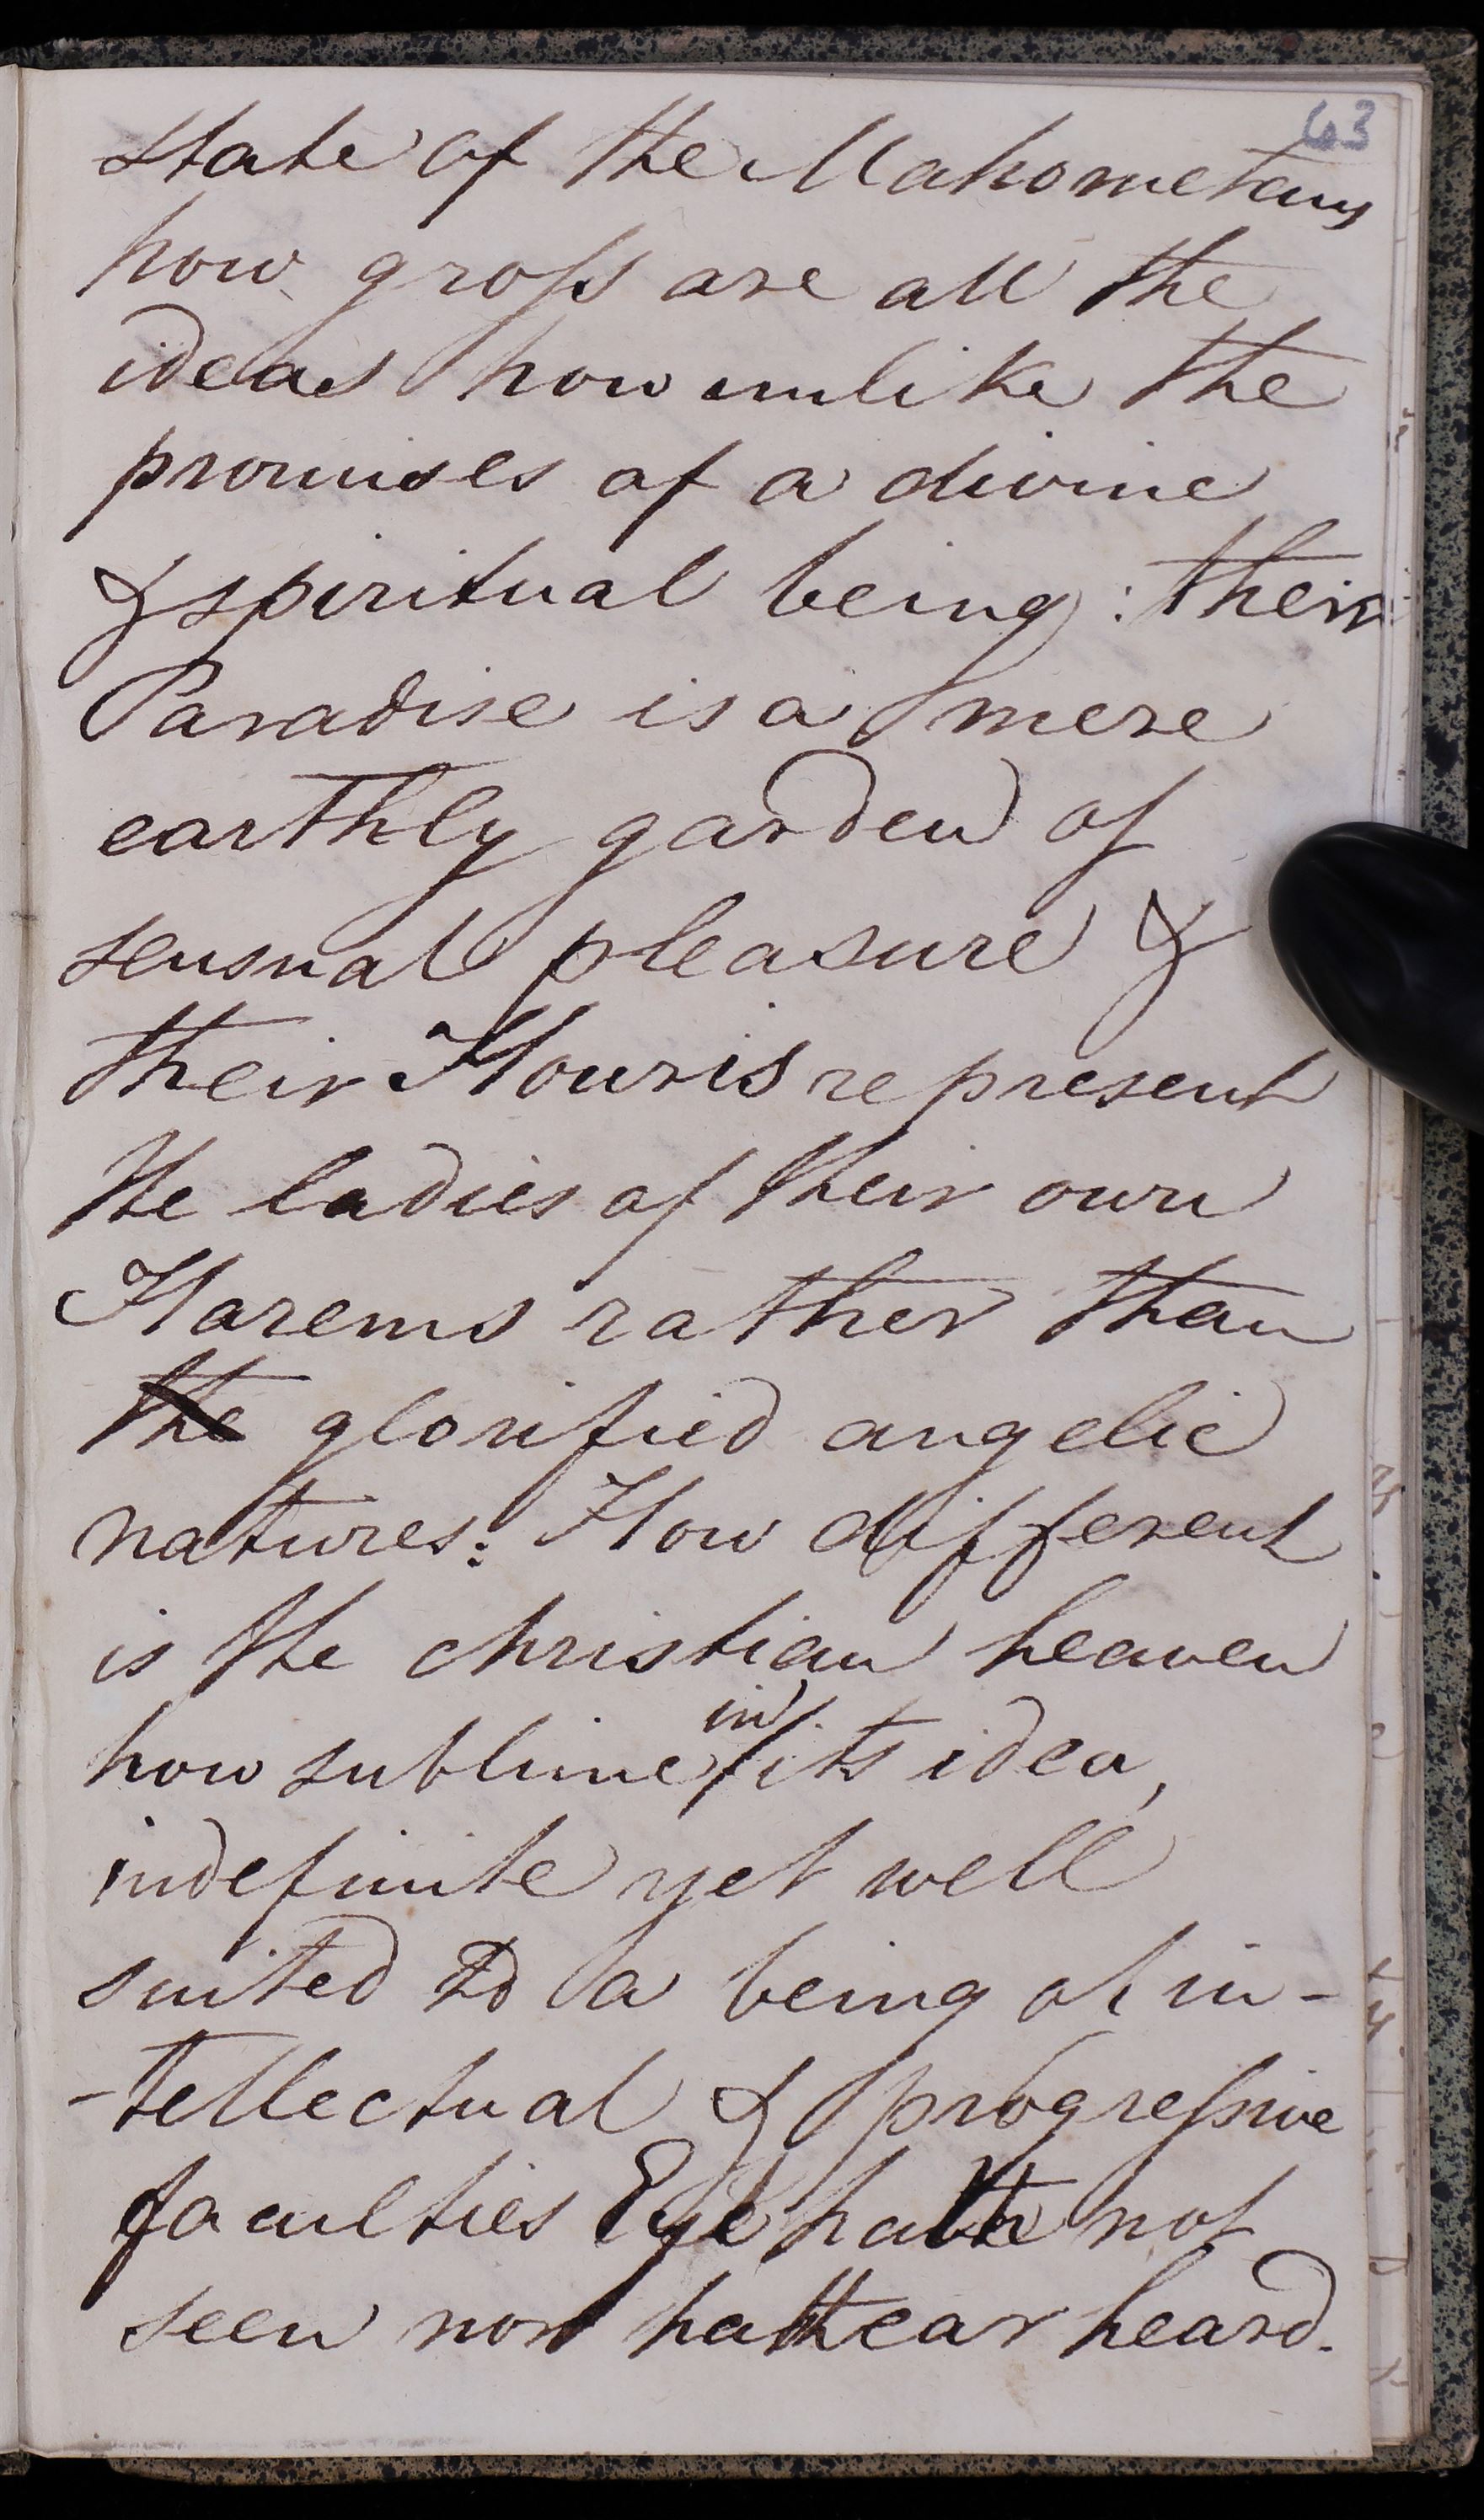 63
state of the Mahometans
how groſs are all the
ideas how unlike the
promises of a divine
& spiritual being: their
Paradise is a mere
earthly garden of
sensual pleasure &
their Houris represent
the ladies of their own
Harems rather than
the glorified angelic
natures: How different
is the christian heaven
how sublime in its idea,
indefinite yet well
suited to a being of in-
-tellectual & progreſsive
faculties Eye hath not
seen nor hath ear heard.